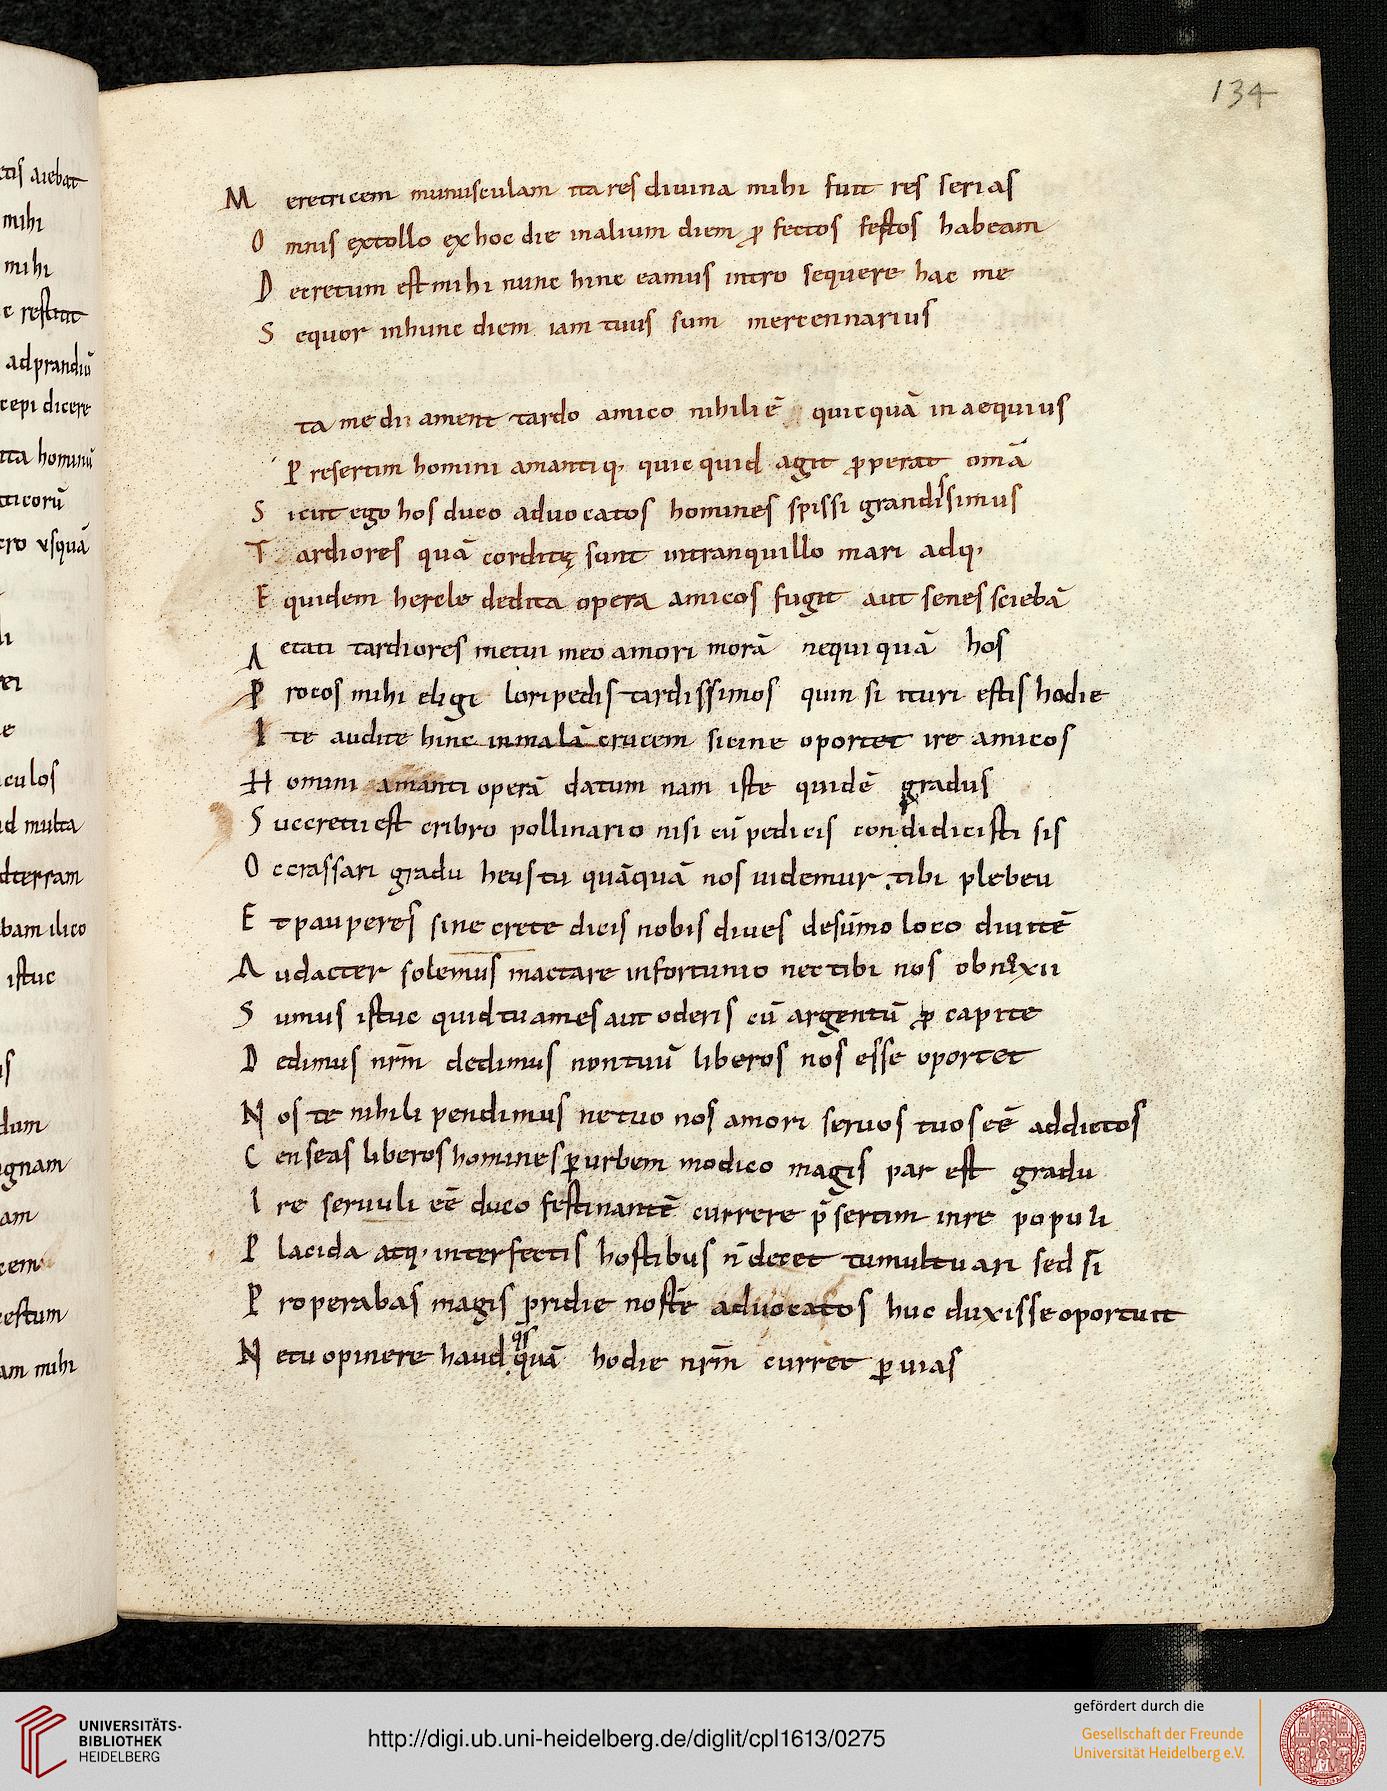 134
M eretricem munusculam ita res diuina mihi fuit res serias
O mnis extollo ex hoc die inalium diem ꝓ fectos festos habeam
D ecretum est mihi nunc hinc eamus intro sequere hac me
S equor inhunc diem iam tuus sum mercennarius
ta me dii ament tardo amico nihili ē quicquā inaequius
P resertim homini amanti q; quic quid agit ꝓperat omā
S icut ego hos duco aduocatos homines spissi grandisimus
T ardiores quā corditę sunt intranquillo mari adq;
E quidem hercle dedita opera amicos fugit aut senes sciebā
A etati tardiores metui meo amori morā nequi quā hos
P rocos mihi eligi loripedis tardissimos quin si ituri estis hodie
I te audite hinc inmalā crucem sicine oportet ire amicos
H omini amanti operā datum nam iste quidē gradus
S uccretu est cribro pollinario nisi cū pedicis condidicisti sis
O ccrassari gradu heus tu quāquā nos uidemur tibi plebeu
E t pauperes sine crete dicis nobis diues desūmo loco diuitē
A udacter solemus mactare infortunio nec tibi nos obnoxii
S umus istuc quid tu ames aut oderis cū argentū ꝓ capite
D edimus nrm̄ dedimus non tuū liberos nos esse oportet
N os te nihili pendimus ne tuo nos amori seruos tuos eē addictos
C enseas liberos homines ꝑurbem modico magis par est gradu
I re seruuli eē duco festinantē currere p̄sertim inre populi
P lacida atq; interfectis hostibus n̄ decet tumultuari sed si
P roperabas magis pridie nostē aduocatos huc duxisse oportuit
N e tu opinere haud quisquā hodie nrm̄ curret ꝑ uias
ctis aiebat
mihi
mihi
c restitit
ad prandiū
cepi dicere
ita hominū
tticorū
cro usquā
culos
id multa
dterram
bam ilico
istuc
dum
gnam
am
cem
estum
am mihi
UNIVERSITÄTS-
BIBLIOTHEK
HEIDELBERG
http://digi.ub.uni-heidelberg.de/diglit/cpl1613/0275
gefördert durch die
Gesellschaft der Freunde
Universität Heidelberg e.V.